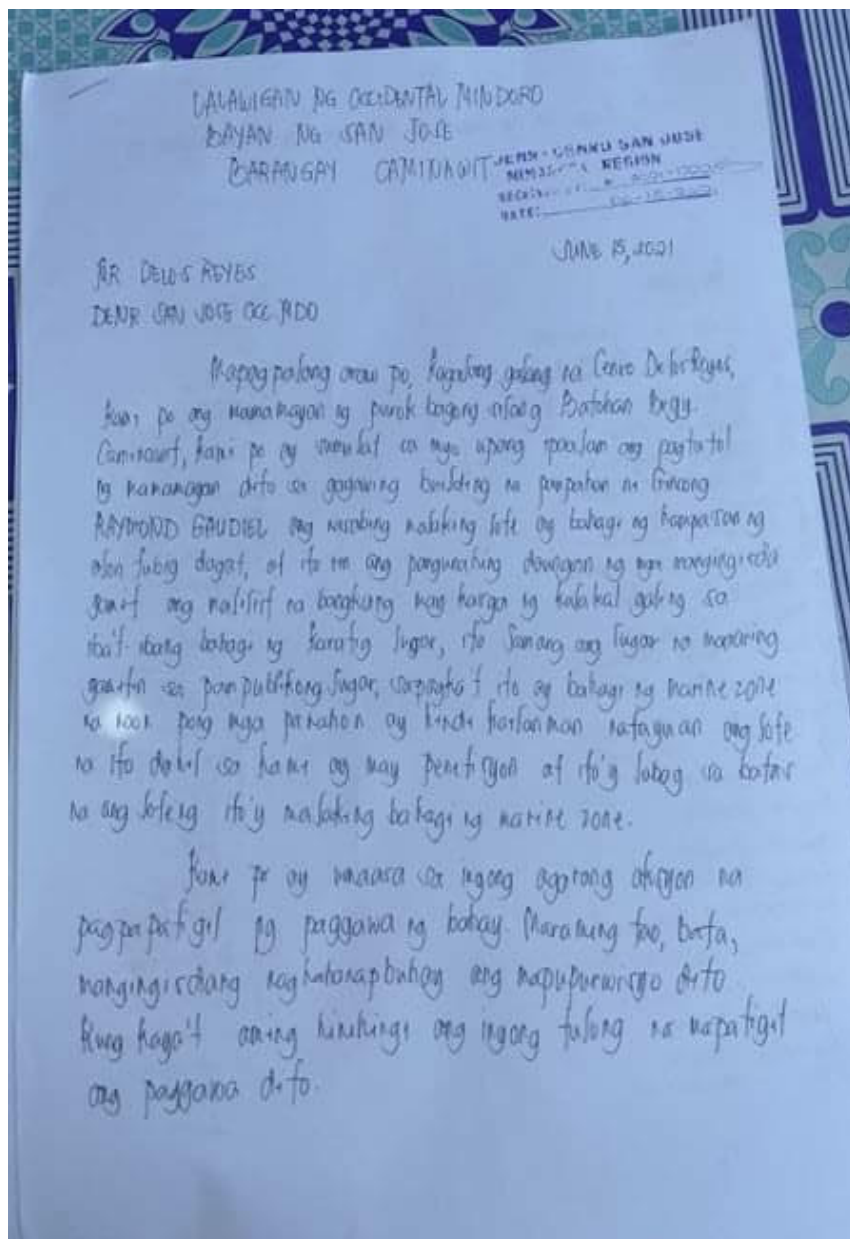 LALAWIGAN NG OCCIDENTAL MINDORO
BAYAN NG SAN JOSE
BARANGAY CAMINAWIT
DENR-CENRO SAN JOSE
REGION
DATE:
JUNE 15, 2021
MR DELOS REYES
DENR SAN JOSE OCC. MDO
Mapagpalang araw po, kagalang galang na Cenro Delos Reyes,
Kami po ang mamamayan ng purok bagong silang Batohan Brgy.
Caminawit, kami po ay sumulat sa inyo upang ipaalam ang pagtatol
ng mamamayan dito sa gagawing building na
RAYMOND GAUDIEL ang nasabing malaking lote ay bahagi ng hampasan ng
alon tubig dagat, at ito rin ang pangunahing daungan ng mga mangingisda
gamit ang maliliit na bangkang may karga ng kalakal galing sa
iba't-ibang bahagi ng karatig lugar, ito lamang ang lugar na maaaring
gamitin sa pampublikong lugar, sapagka't ito ay bahagi ng marine zone
na noon pang mga panahon ay hindi kailanman natayuan ang lote
na ito dahil sa kami ay may penetisyon at ito'y labag sa batas
na ang loteng ito'y malaking bahagi ng marine zone.
Kami po ay umaasa sa inyong agarang aksyon na
pagpapatigil ng paggawa ng bahay. Maraming tao, bata,
mangingisdang naghahanapbuhay ang mapupurwisyo dito
Kung kaya't aming hinihingi ang inyong tulong na mapatigil
ang paggawa dito.